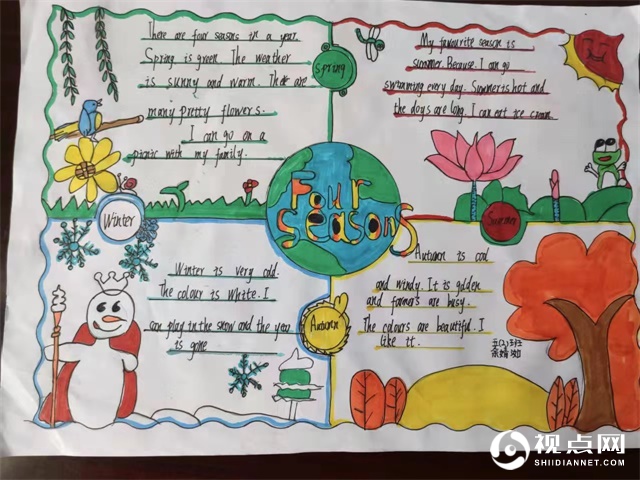 There are four seasons in a year.
Spring is green. The weather
is sunny and warm. There are
many pretty flowers.
I can go on a
picnic with my family.
Spring
My favourite season is
summer. Because I can go
swimming every day. Summer is hot and
the days are long. I can eat ice cream.
Summer
Four
Seasons
Winter
Winter is very cold.
The colour is White. I
can play in the snow and the you
is gone
Autumn
Autumn is cool
and windy. It is golden
and farmers are busy.
The colours are beautiful. I
like it.
视点网
SHIIDIANNET.COM